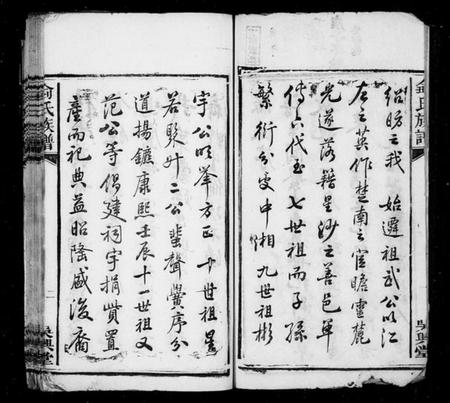 紹昉之我 始遷祖武公以江
左之英作楚南之宦瞻雲麓
光遂落籍星沙之善邑單
傳六代至七世祖而子孫
繁衍分支中湘九世祖彬
俞氏族譜
吳興堂
宇公以峯方正十世祖星
若聚升二公蜚聲黌序分
道揚鑣康熙壬辰十一世祖又
范公等倡建祠宇捐貲置
產而祀典益昭隆盛後裔
俞氏族譜
二
吳興堂